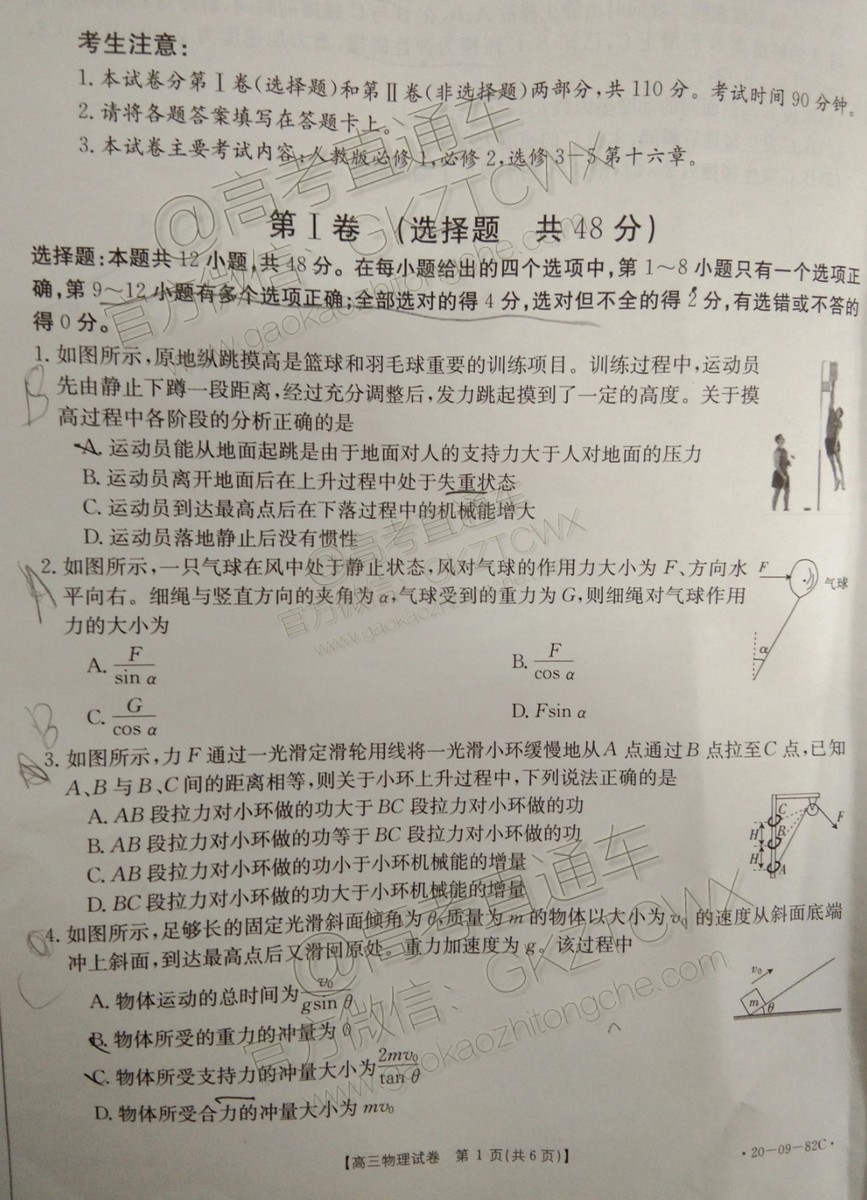 考生注意:
1.本试卷分第Ⅰ卷(选择题)和第Ⅱ卷(非选择题)两部分,共110分。考试时间90分钟。
2.请将各题答案填写在答题卡上。
3.本试卷主要考试内容:人教版必修1,必修2,选修3-5第十六章。
第Ⅰ卷 (选择题 共48分)
选择题:本题共12小题,共48分。在每小题给出的四个选项中,第1~8小题只有一个选项正
确,第9~12小题有多个选项正确;全部选对的得4分,选对但不全的得2分,有选错或不答的
得0分。
1.如图所示,原地纵跳摸高是篮球和羽毛球重要的训练项目。训练过程中,运动员
先由静止下蹲一段距离,经过充分调整后,发力跳起摸到了一定的高度。关于摸
高过程中各阶段的分析正确的是
B
A.运动员能从地面起跳是由于地面对人的支持力大于人对地面的压力
B.运动员离开地面后在上升过程中处于失重状态
C.运动员到达最高点后在下落过程中的机械能增大
D.运动员落地静止后没有惯性
2.如图所示,一只气球在风中处于静止状态,风对气球的作用力大小为F、方向水
平向右。细绳与竖直方向的夹角为α,气球受到的重力为G,则细绳对气球作用
力的大小为
A
F
气球
α
A. F/sin α
B. F/cos α
C. G/cos α
D. Fsin α
B
3.如图所示,力F通过一光滑定滑轮用线将一光滑小环缓慢地从A点通过B点拉至C点,已知
A、B与B、C间的距离相等,则关于小环上升过程中,下列说法正确的是
A. AB段拉力对小环做的功大于BC段拉力对小环做的功
B. AB段拉力对小环做的功等于BC段拉力对小环做的功
C. AB段拉力对小环做的功小于小环机械能的增量
D. BC段拉力对小环做的功大于小环机械能的增量
C
B
A
H
H
F
4.如图所示,足够长的固定光滑斜面倾角为θ,质量为m的物体以大小为v₀的速度从斜面底端
冲上斜面,到达最高点后又滑回原处。重力加速度为g。该过程中
C
A.物体运动的总时间为v₀/gsin θ
B.物体所受的重力的冲量为0
C.物体所受支持力的冲量大小为2mv₀/tan θ
D.物体所受合力的冲量大小为mv₀
v₀
m
θ
【高三物理试卷 第1页(共6页)】
·20-09-82C·
@高考直通车
官方微信:GKZTCWX
www.gaokaozhitongche.com
@高考直通车
官方微信:GKZTCWX
www.gaokaozhitongche.com
@高考直通车
官方微信:GKZTCWX
www.gaokaozhitongche.com